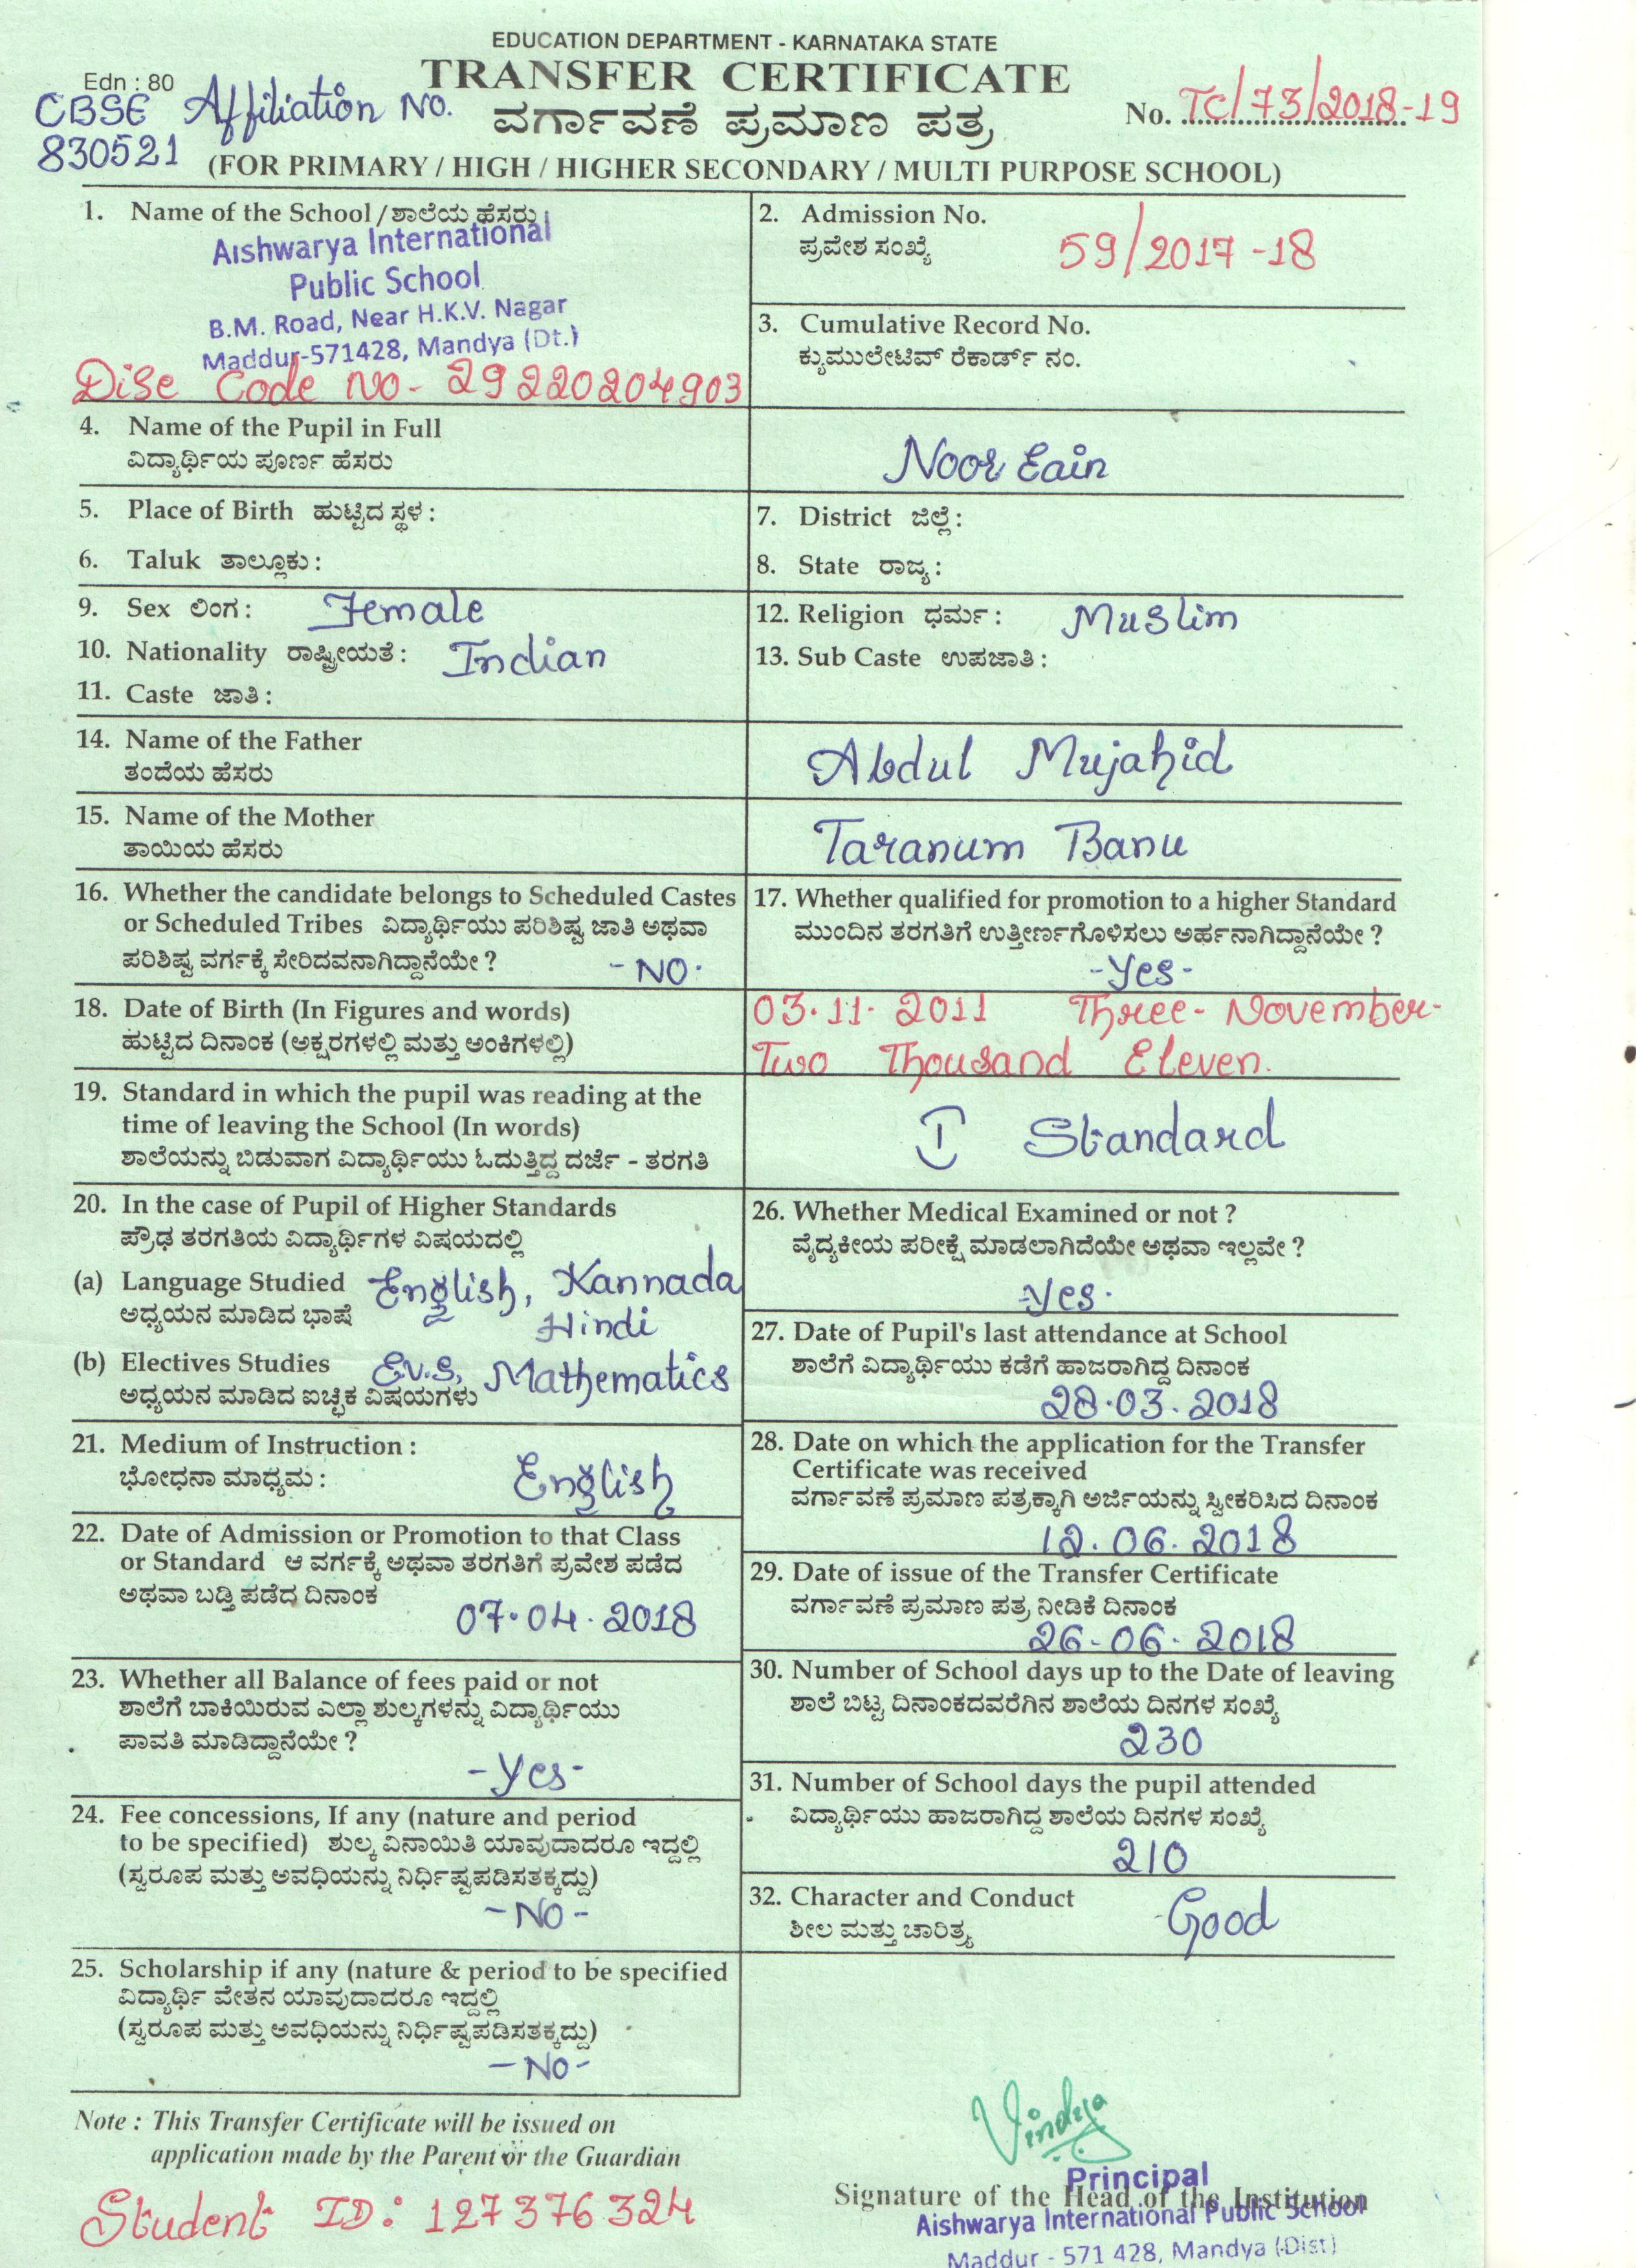 EDUCATION DEPARTMENT - KARNATAKA STATE
Edn : 80
TRANSFER CERTIFICATE
CBSE Affiliation No.
830521
ವರ್ಗಾವಣೆ ಪ್ರಮಾಣ ಪತ್ರ
No. TC/73/2018-19
(FOR PRIMARY / HIGH / HIGHER SECONDARY / MULTI PURPOSE SCHOOL)
1. Name of the School / ಶಾಲೆಯ ಹೆಸರು
Aishwarya International
Public School
B.M. Road, Near H.K.V. Nagar
Maddur-571428, Mandya (Dt.)
Dise Code No - 29220204903
2. Admission No.
ಪ್ರವೇಶ ಸಂಖ್ಯೆ
59/2017-18
3. Cumulative Record No.
ಕ್ಯುಮುಲೇಟಿವ್ ರೆಕಾರ್ಡ್ ನಂ.
4. Name of the Pupil in Full
ವಿದ್ಯಾರ್ಥಿಯ ಪೂರ್ಣ ಹೆಸರು
Noor Eain
5. Place of Birth ಹುಟ್ಟಿದ ಸ್ಥಳ :
6. Taluk ತಾಲ್ಲೂಕು :
7. District ಜಿಲ್ಲೆ :
8. State ರಾಜ್ಯ :
9. Sex ಲಿಂಗ : Female
10. Nationality ರಾಷ್ಟ್ರೀಯತೆ : Indian
11. Caste ಜಾತಿ :
12. Religion ಧರ್ಮ : Muslim
13. Sub Caste ಉಪಜಾತಿ :
14. Name of the Father
ತಂದೆಯ ಹೆಸರು
Abdul Mujahid
15. Name of the Mother
ತಾಯಿಯ ಹೆಸರು
Taranum Banu
16. Whether the candidate belongs to Scheduled Castes
or Scheduled Tribes ವಿದ್ಯಾರ್ಥಿಯು ಪರಿಶಿಷ್ಟ ಜಾತಿ ಅಥವಾ
ಪರಿಶಿಷ್ಟ ವರ್ಗಕ್ಕೆ ಸೇರಿದವನಾಗಿದ್ದಾನೆಯೇ ? - NO.
17. Whether qualified for promotion to a higher Standard
ಮುಂದಿನ ತರಗತಿಗೆ ಉತ್ತೀರ್ಣಗೊಳಿಸಲು ಅರ್ಹನಾಗಿದ್ದಾನೆಯೇ ?
- Yes -
18. Date of Birth (In Figures and words)
ಹುಟ್ಟಿದ ದಿನಾಂಕ (ಅಕ್ಷರಗಳಲ್ಲಿ ಮತ್ತು ಅಂಕಿಗಳಲ್ಲಿ)
03.11.2011 Three - November -
Two Thousand Eleven.
19. Standard in which the pupil was reading at the
time of leaving the School (In words)
ಶಾಲೆಯನ್ನು ಬಿಡುವಾಗ ವಿದ್ಯಾರ್ಥಿಯು ಓದುತ್ತಿದ್ದ ದರ್ಜೆ - ತರಗತಿ
I Standard
20. In the case of Pupil of Higher Standards
ಪ್ರೌಢ ತರಗತಿಯ ವಿದ್ಯಾರ್ಥಿಗಳ ವಿಷಯದಲ್ಲಿ
(a) Language Studied English, Kannada
ಅಧ್ಯಯನ ಮಾಡಿದ ಭಾಷೆ Hindi
(b) Electives Studies Ev.S, Mathematics
ಅಧ್ಯಯನ ಮಾಡಿದ ಐಚ್ಛಿಕ ವಿಷಯಗಳು
21. Medium of Instruction :
ಭೋಧನಾ ಮಾಧ್ಯಮ : English
22. Date of Admission or Promotion to that Class
or Standard ಆ ವರ್ಗಕ್ಕೆ ಅಥವಾ ತರಗತಿಗೆ ಪ್ರವೇಶ ಪಡೆದ
ಅಥವಾ ಬಡ್ತಿ ಪಡೆದ ದಿನಾಂಕ
07.04.2018
23. Whether all Balance of fees paid or not
ಶಾಲೆಗೆ ಬಾಕಿಯಿರುವ ಎಲ್ಲಾ ಶುಲ್ಕಗಳನ್ನು ವಿದ್ಯಾರ್ಥಿಯು
ಪಾವತಿ ಮಾಡಿದ್ದಾನೆಯೇ ?
- Yes -
24. Fee concessions, If any (nature and period
to be specified) ಶುಲ್ಕ ವಿನಾಯಿತಿ ಯಾವುದಾದರೂ ಇದ್ದಲ್ಲಿ
(ಸ್ವರೂಪ ಮತ್ತು ಅವಧಿಯನ್ನು ನಿರ್ಧಿಷ್ಟಪಡಿಸತಕ್ಕದ್ದು)
- NO -
25. Scholarship if any (nature & period to be specified
ವಿದ್ಯಾರ್ಥಿ ವೇತನ ಯಾವುದಾದರೂ ಇದ್ದಲ್ಲಿ
(ಸ್ವರೂಪ ಮತ್ತು ಅವಧಿಯನ್ನು ನಿರ್ಧಿಷ್ಟಪಡಿಸತಕ್ಕದ್ದು)
- NO -
26. Whether Medical Examined or not ?
ವೈದ್ಯಕೀಯ ಪರೀಕ್ಷೆ ಮಾಡಲಾಗಿದೆಯೇ ಅಥವಾ ಇಲ್ಲವೇ ?
- Yes.
27. Date of Pupil's last attendance at School
ಶಾಲೆಗೆ ವಿದ್ಯಾರ್ಥಿಯು ಕಡೆಗೆ ಹಾಜರಾಗಿದ್ದ ದಿನಾಂಕ
28.03.2018
28. Date on which the application for the Transfer
Certificate was received
ವರ್ಗಾವಣೆ ಪ್ರಮಾಣ ಪತ್ರಕ್ಕಾಗಿ ಅರ್ಜಿಯನ್ನು ಸ್ವೀಕರಿಸಿದ ದಿನಾಂಕ
12.06.2018
29. Date of issue of the Transfer Certificate
ವರ್ಗಾವಣೆ ಪ್ರಮಾಣ ಪತ್ರ ನೀಡಿಕೆ ದಿನಾಂಕ
26-06.2018
30. Number of School days up to the Date of leaving
ಶಾಲೆ ಬಿಟ್ಟ ದಿನಾಂಕದವರೆಗಿನ ಶಾಲೆಯ ದಿನಗಳ ಸಂಖ್ಯೆ
230
31. Number of School days the pupil attended
ವಿದ್ಯಾರ್ಥಿಯು ಹಾಜರಾಗಿದ್ದ ಶಾಲೆಯ ದಿನಗಳ ಸಂಖ್ಯೆ
210
32. Character and Conduct
ಶೀಲ ಮತ್ತು ಚಾರಿತ್ರ್ಯ
Good
Note : This Transfer Certificate will be issued on
application made by the Parent or the Guardian
Student ID: 127376324
Vindya
Principal
Signature of the Head of the Institution
Aishwarya International Public School
Maddur - 571 428, Mandya (Dist)